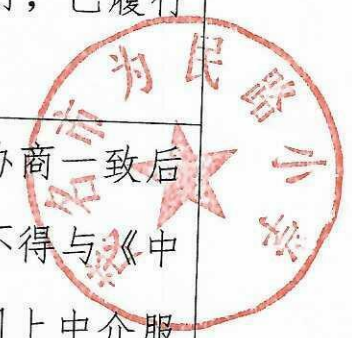 ，已履行
协商一致后
不得与《中
上中介服
茂名市为民路小学